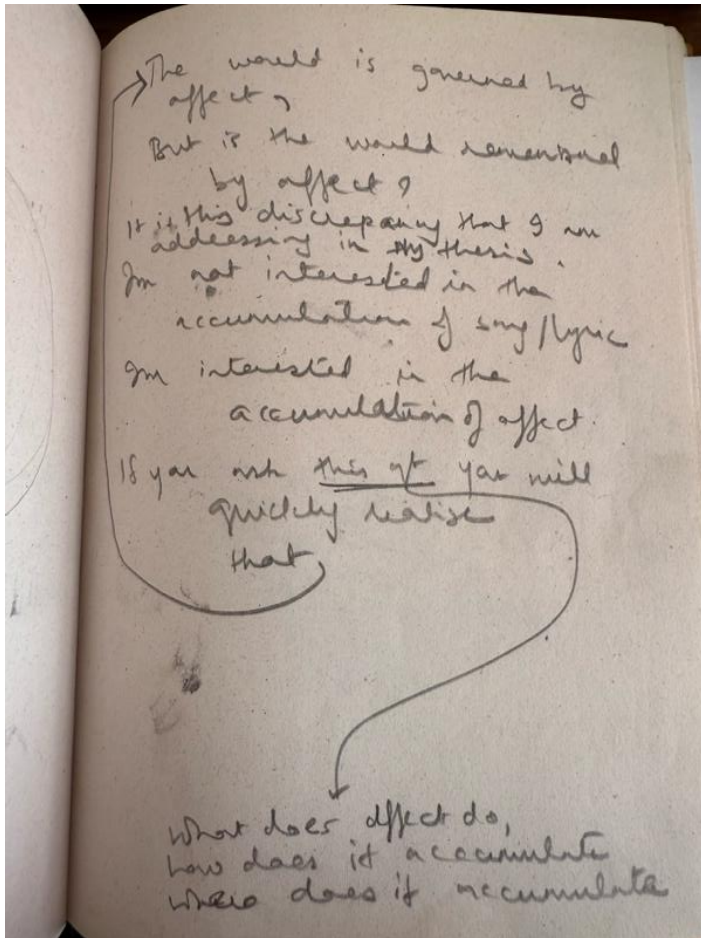 The world is governed by
affect,
But is the world remembered
by affect?
It is this discrepancy that I am
addressing in my thesis.
Im not interested in the
accumulation of song/lyric
Im interested in the
accumulation of affect.
If you ask this qt you will
quickly realise
that
What does affect do,
how does it accumulate
where does it accumulate